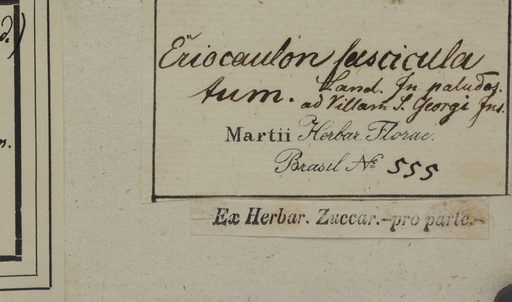 Eriocaulon fascicula
tum. Land. In paludos.
ad Villam S. Georgi Ins.
Martii Herbar. Florae.
Brasil Nº 555
Ex Herbar. Zuccar.-pro parte.-